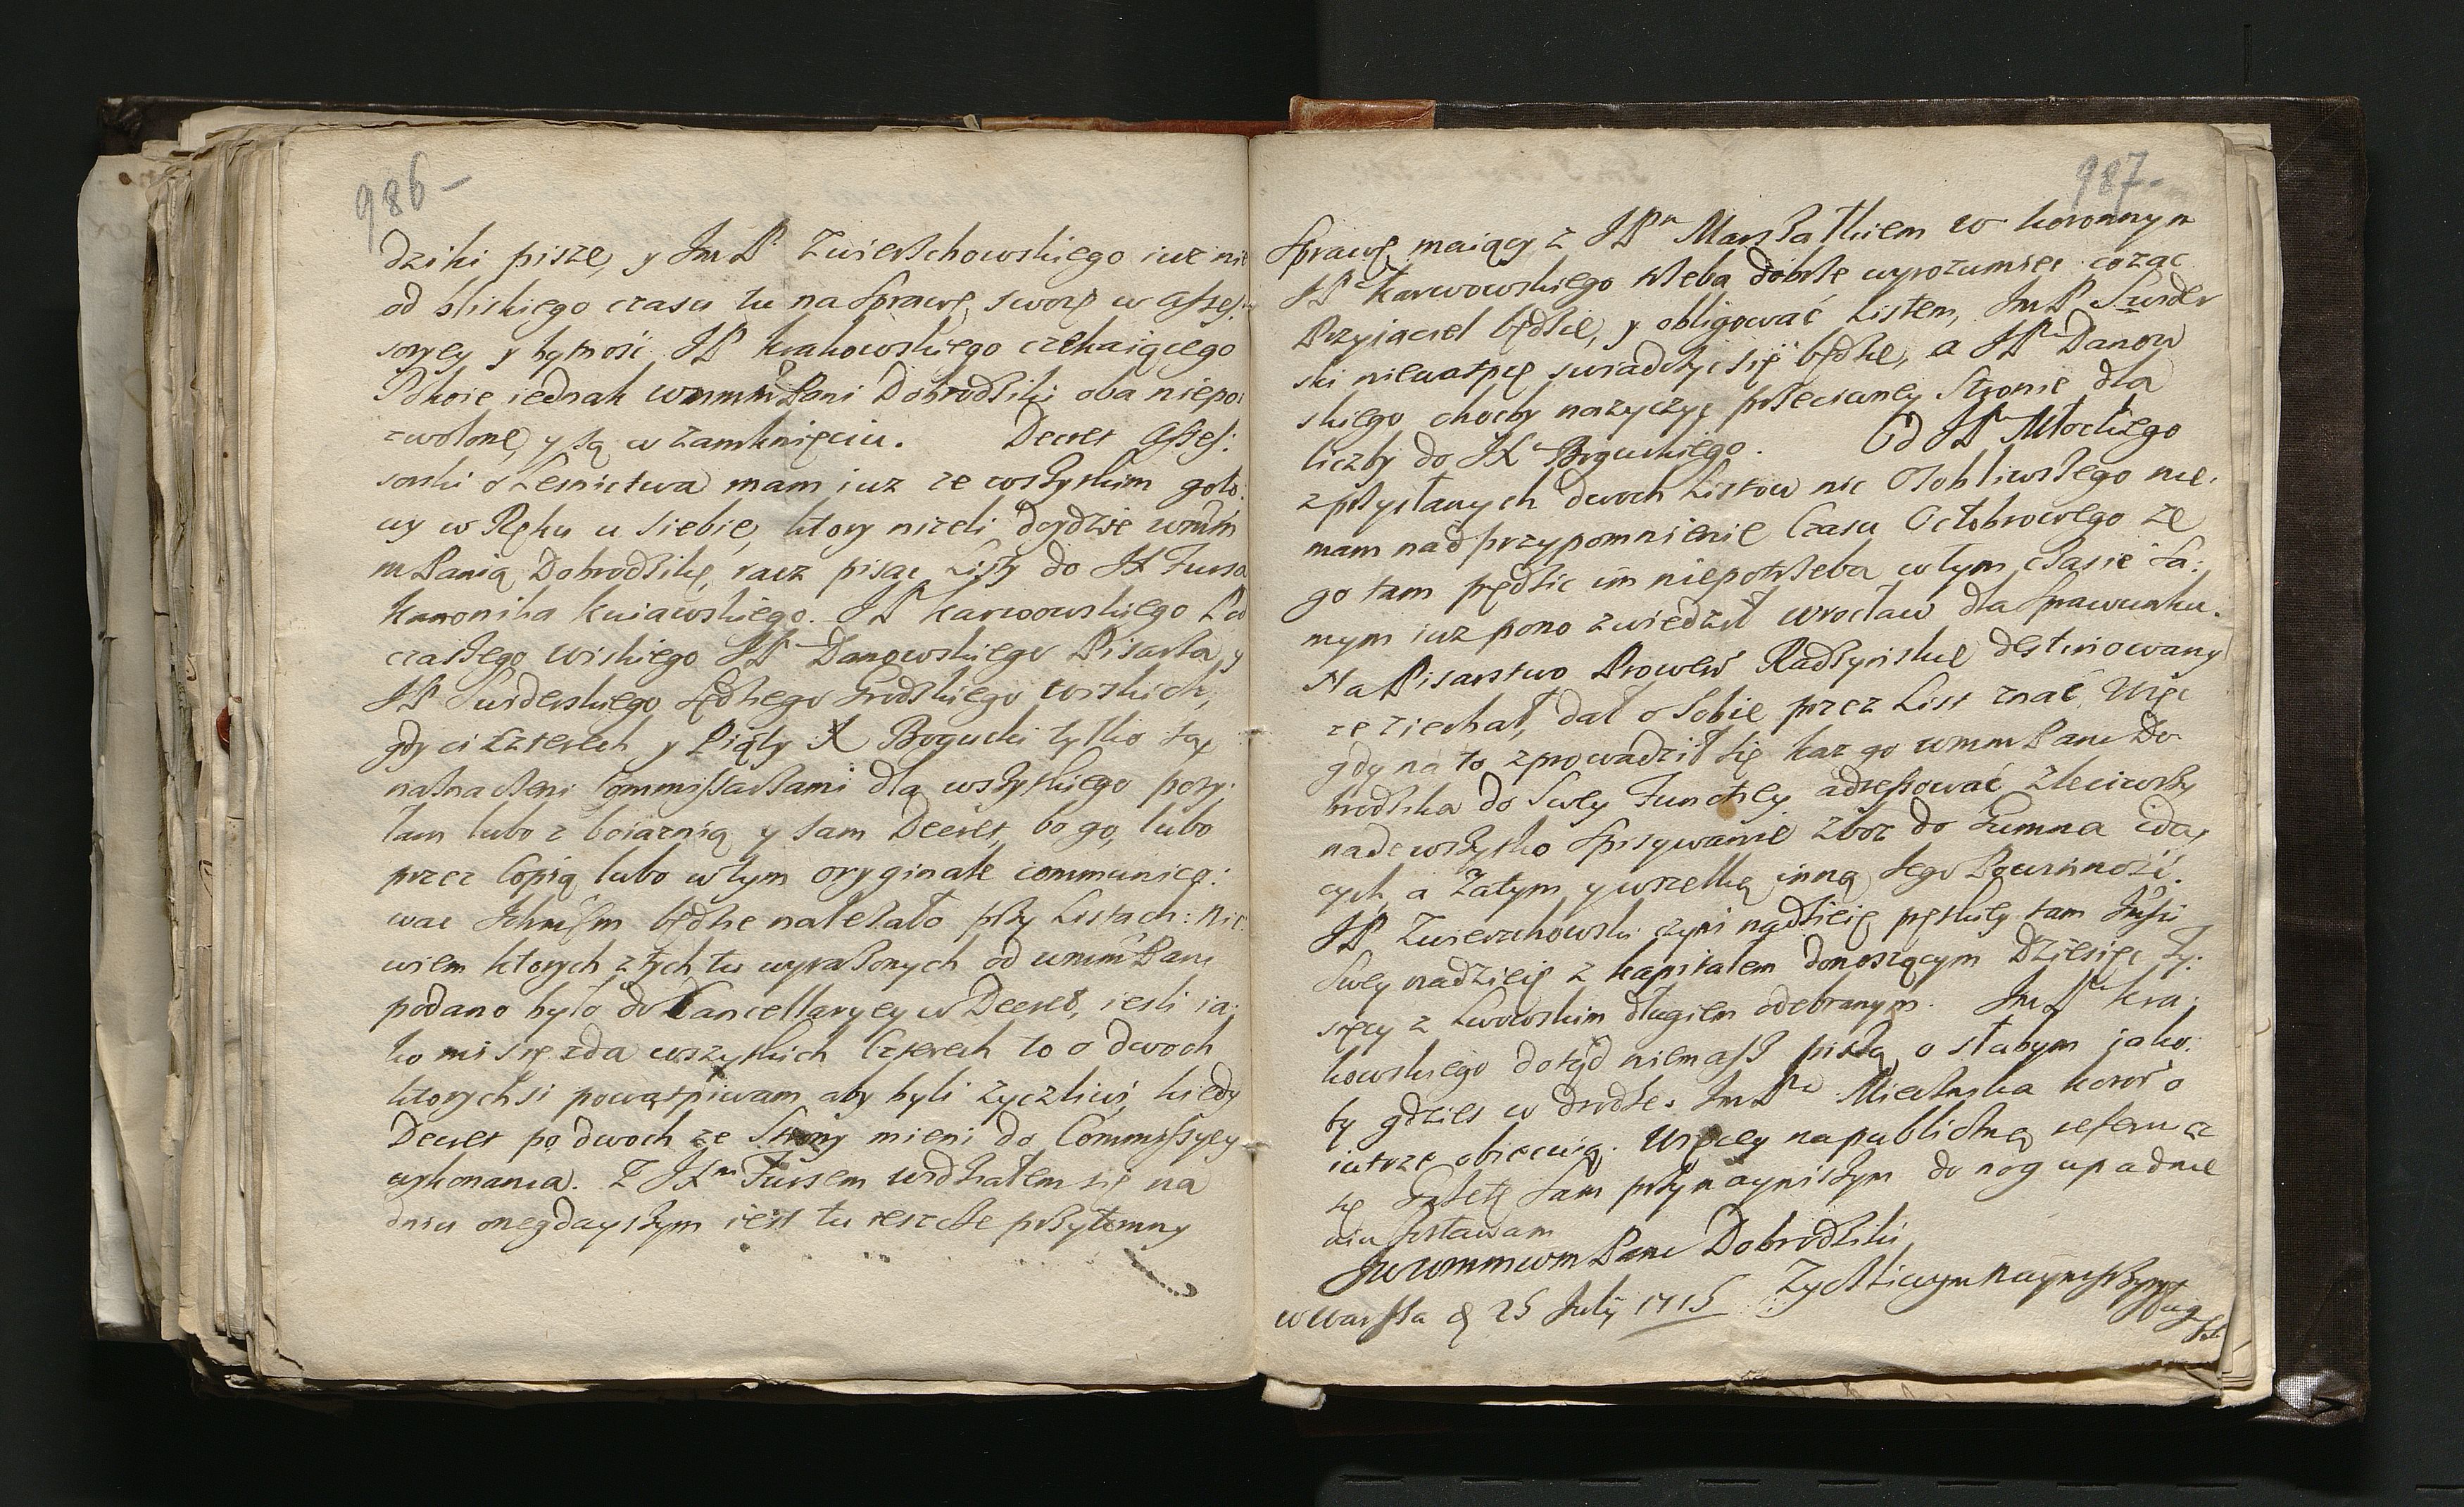 986-
dziki pisze, y JmP Zwierschowskiego iuz nie
od bliskiego czasu tu na Sprawę swoię w Asses:
soryey y bytność JP Krakowskiego czekaiącego
Pokoie iednak wmmm Pani Dobrodziki oba niepo:
zwolone, y są w zamknięciu. Decret Asses:
sorski o Lesnictwa mam iuz ze wszystkim goto:
wy w Ręku u siebie, ktory nizeli doydzie wmm
m Panią Dobrodzikę, racz pisać Listy do JX Fursa
Kanonika Kuiawskiego. JP Karwowskiego Pod
czaszego wiskiego JP Danowskiego Pisarza, y
JP Swiderskiego sędzego Grodskiego wiskich,
gdy ci czterech y Piąty X Bogucki tylko są
naznaczeni Commissarzami dla wszystkiego posy:
łam lubo z boiaznią y sam Decret, bo go, lubo
przez Copią lubo w tym oryginale communico:
wac będzie nalezało przy Listach: Nie
wiem ktorych z tych tu wyrazonych od wmm Pani
podano było do Cancellaryey w Decret, iesli ia:
ko mi się zda wszystkich czterech to o dwoch
ktorychsi powątpiwam aby byli zyczliwi, kiedy
Decret po dwoch ze Strony mieni do Commissyey
wykonania. Z JXm Fursem widziałem się na
dniu onegdayszym iest tu ieszcze przytomny
987-
Sprawę maiący z JPm Marszałkiem w koronnym
JP Karwowskiego trzeba dobrze wyrozumiec cozac
Przyiaciel będzie, y obligować Listem, JmP Swider
ski niewatpię swiadczyc się będzie, a JP Danow
skiego choćby nazyczyć przeciwney Stronie dla
liczby do JX Boguckiego. Od JP Młockiego
z przysłanych dwoch Listow nic Osobliwszego nie:
mam nad przypomnienie Czasu Octobrowego ze
go tam pędzic im niepotrzeba w tym czasie sa:
mym iuz pono zwiedził Wrocław dla Sprawunku.
Na Pisarstwo Prowent Radzynskie destinowany
ze ziechał, dał o Sobie przez List znać, Więc
gdy na to zprowadził się kaz go wmm Pani Do
brodzika do Swey Functiey adressować zleciwszy
nadewszystko Spisywanie zboz do Gumna idą
cych, a Zatym y wszelką inną Jego Powinność.
JP Zwierzchowski czyni nadzieię pręskiey tam
Swey nadzieię z kapitałem donoszącym Dziesięc ty:
sięcy z Lwowskim długiem odebranym. JmP Kra:
kowskiego dotąd niemasz piszą o słabym iako:
by gdzies w drodze. JmP Miecznika koron o
iutrze obiecuią. Więcey na publiczną referuiąc
się Gazetę sam przy nayniszym do nog upadnie
niu zostawam
Jwwmmwm Pani Dobrodziki
Zyczliwym naynizszym Sługą
w Warssa d 25 July 1715